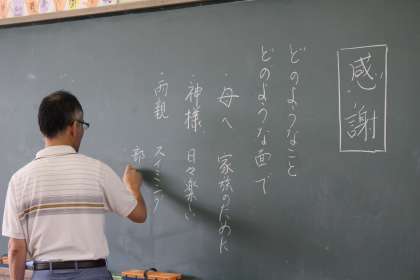 感謝
どのようなこと
どのような面で
・母へ 家族のために
・神様 日々楽しい
・両親 スイミング
部